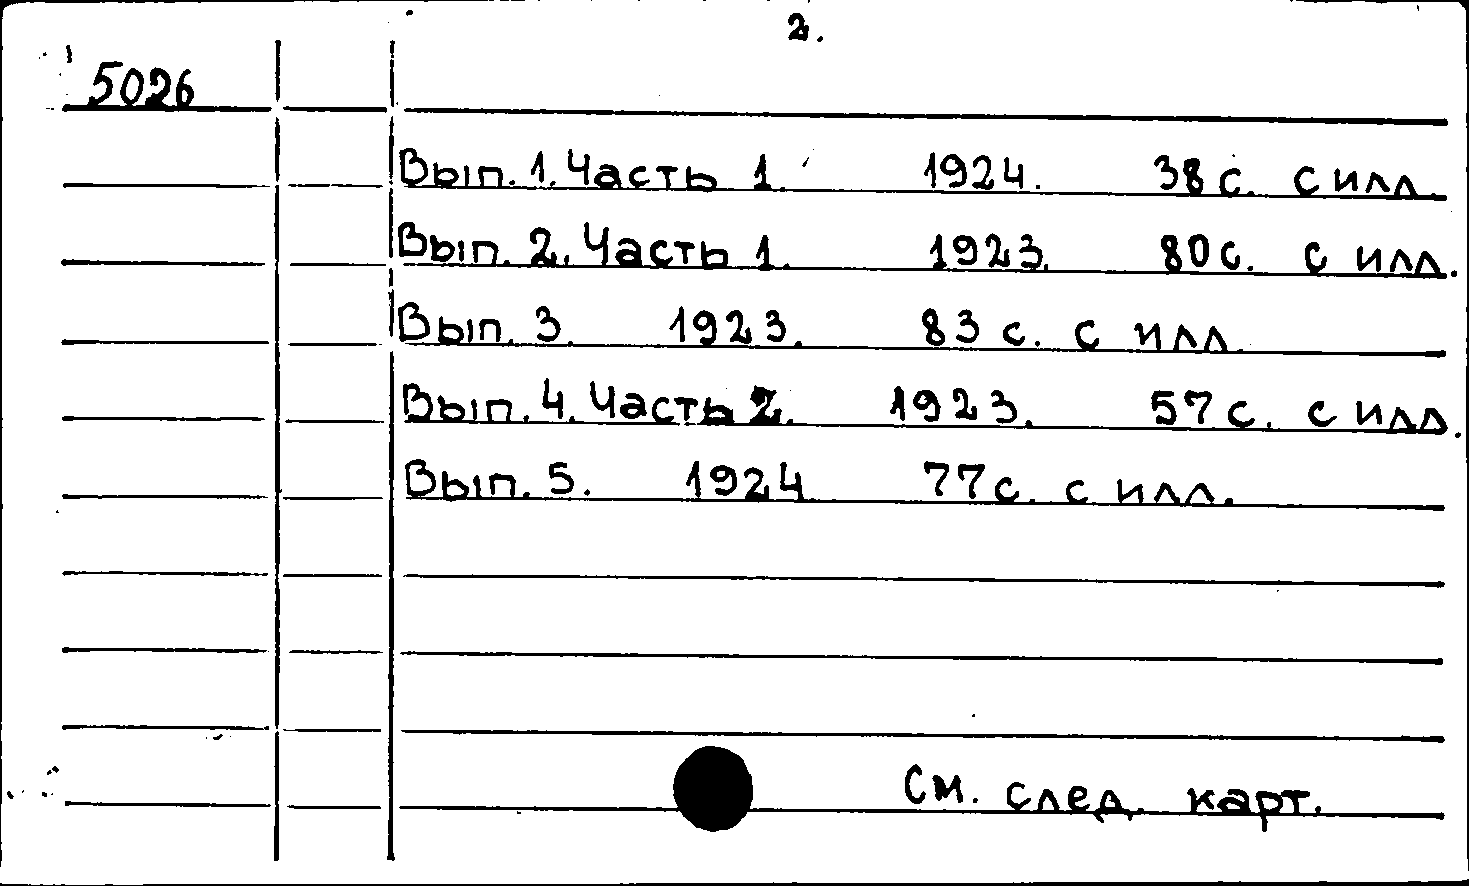 2.
5026
Вып. 1. Часть 1. 1924. 38 с. с илл.
Вып. 2. Часть 1. 1923. 80 с. с илл.
Вып. 3. 1923. 83 с. с илл.
Вып. 4. Часть 2. 1923. 57 с. с илл.
Вып. 5. 1924 77 с. с илл.
См. след. карт.